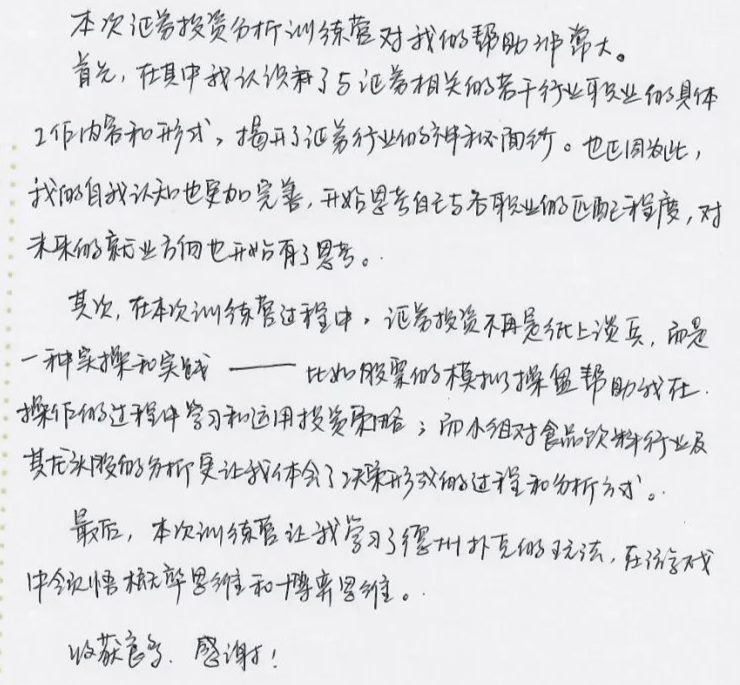 本次证券投资分析训练营对我的帮助非常大。
首先，在其中我认识到了与证券相关的若干行业职业的具体
工作内容和形式，揭开了证券行业的神秘面纱。也正因为此，
我的自我认知也更加完善，开始思考自己与各职业的匹配程度，对
未来的就业方向也开始有了思考。
其次，在本次训练营过程中，证券投资不再是纸上谈兵，而是
一种实操和实践——比如股票的模拟操盘帮助我在
操作的过程中学习和运用投资策略；而小组对食品饮料行业及
其龙头股的分析更让我体会了决策形成的过程和分析方式。
最后，本次训练营让我学习了德州扑克的玩法，在该游戏
中领悟概率思维和博弈思维。
收获良多，感谢！